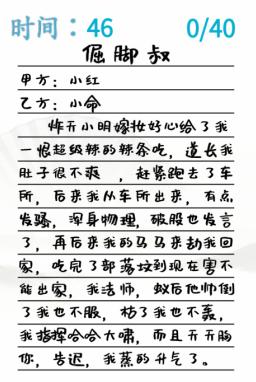 时间：46 0/40
倔脚叔
甲方：小红
乙方：小命
炸天小明嫁妆好心给了我
一恨超级辣的辣条吃，道长我
肚子很不爽，赶紧跑去了车
所，后来我从车所出来，有点
发骚，浑身物理，破股也发言
了，再后来我的马马来劫我回
家，吃完了部落坟到现在害不
能出家，我法师，蚁后他帅倒
了我也不服，枯了我也不轰，
我指挥哈哈大啸，而且天天胸
你，告迟，我蒸的升气了。